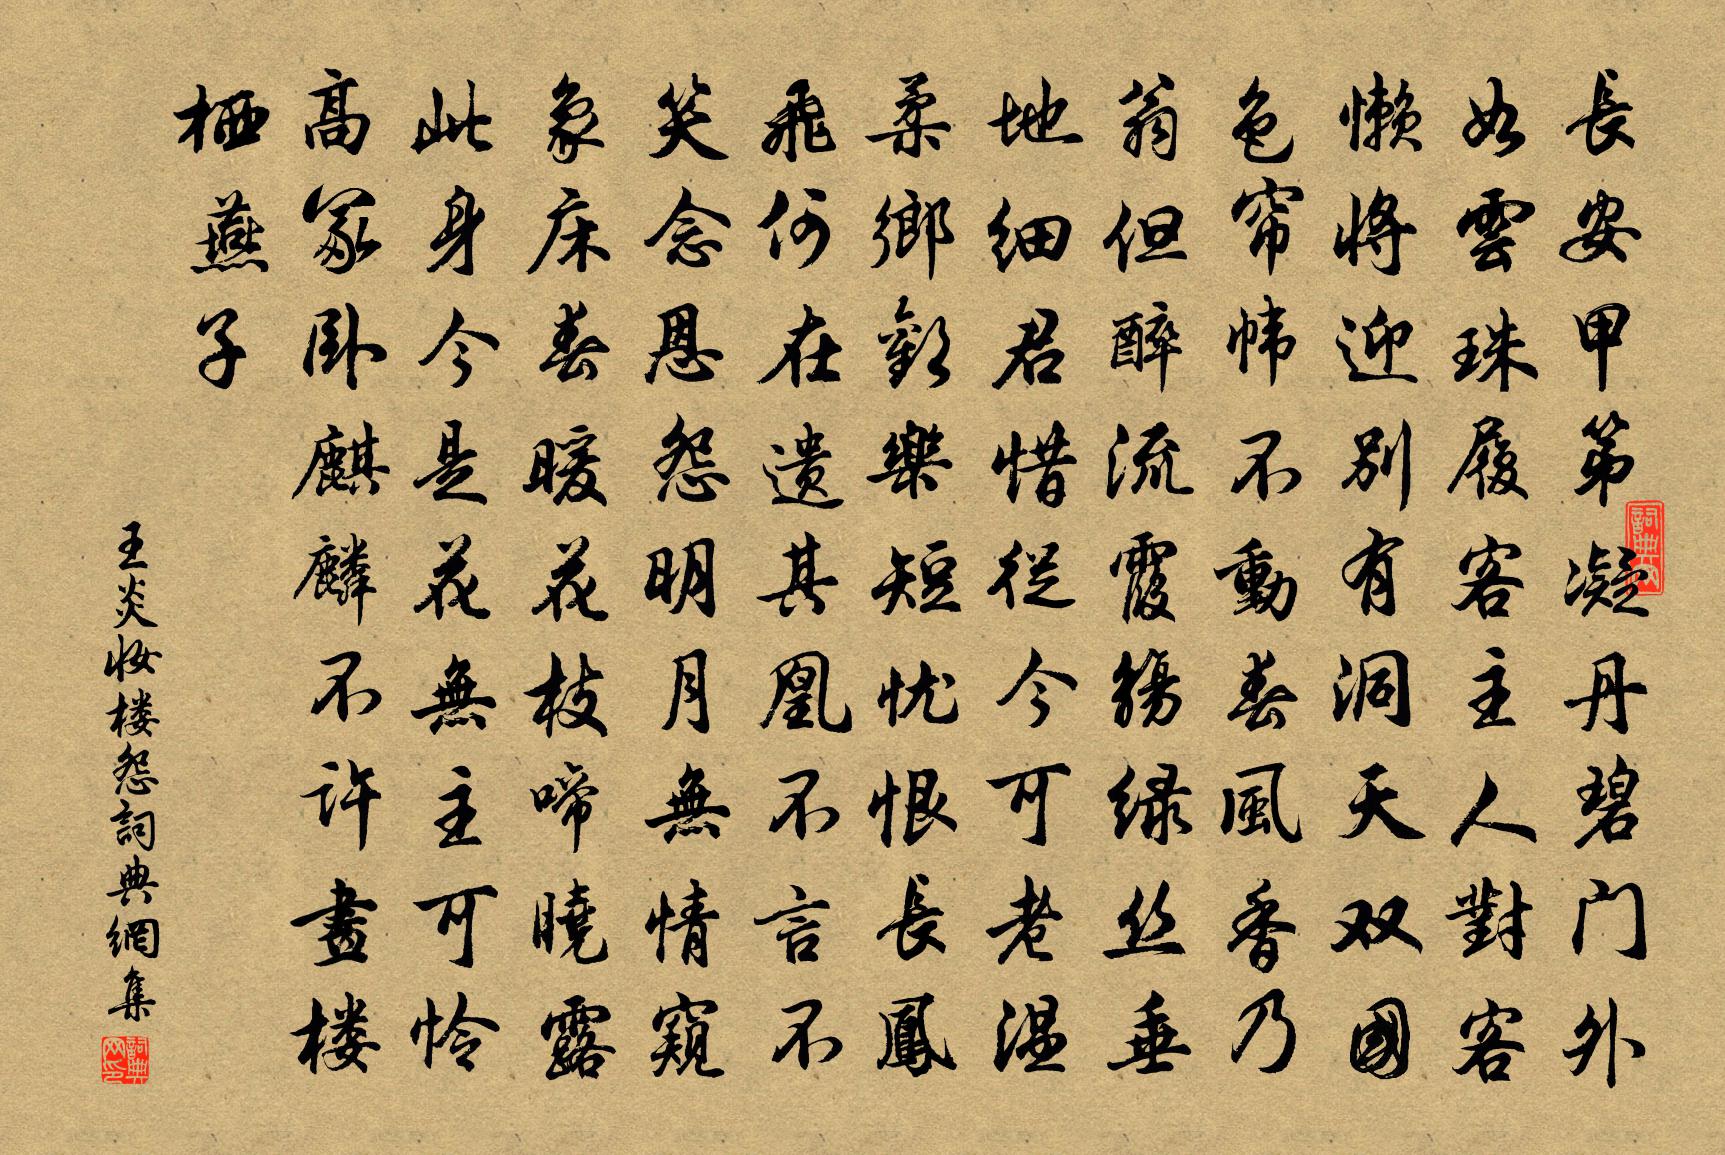 長安甲第凝丹碧门外
如雲珠履客主人對客
懒將迎别有洞天双國
色帘帏不動春風香乃
翁但醉流霞觞绿丝垂
地细君惜從今可老温
柔鄉歡樂短忧恨長鳳
飛何在遗其凰不言不
笑念恩怨明月無情窺
象床春暖花枝啼曉露
此身今是花無主可怜
高冢卧麒麟不许畫楼
栖燕子
王炎妆楼怨詞典網集
詞典网
詞典网印